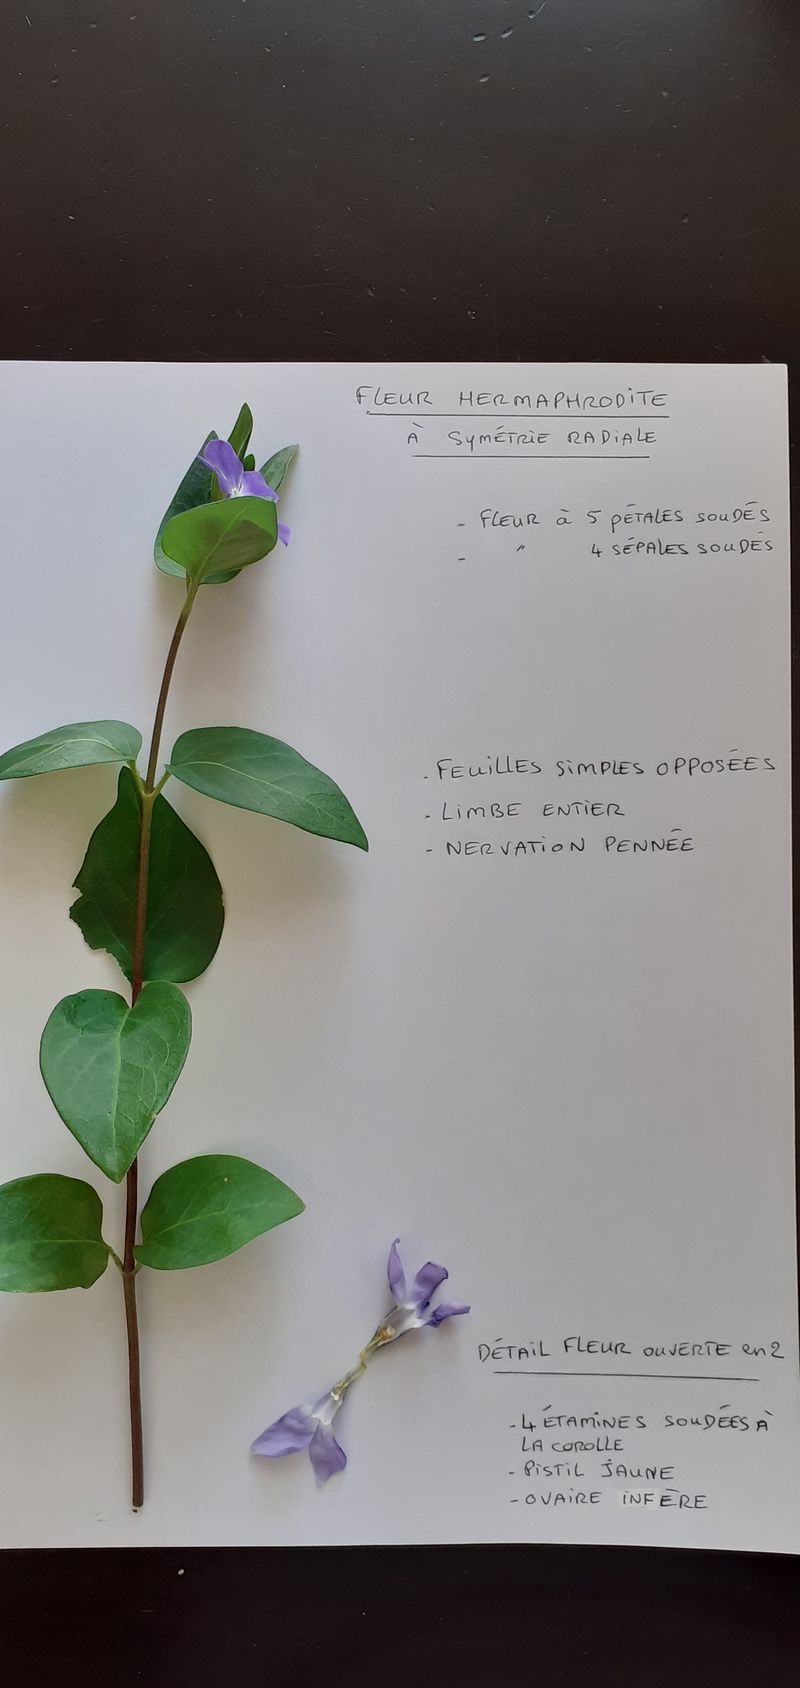 FLEUR HERMAPHRODITE
À SYMÉTRIE RADIALE
- FLEUR à 5 PÉTALES SOUDÉS
- " 4 SÉPALES SOUDÉS
- FEUILLES SIMPLES OPPOSÉES
- LIMBE ENTIER
- NERVATION PENNÉE
DÉTAIL FLEUR OUVERTE en 2
- 4 ÉTAMINES SOUDÉES À
LA COROLLE
- PISTIL JAUNE
- OVAIRE INFÈRE